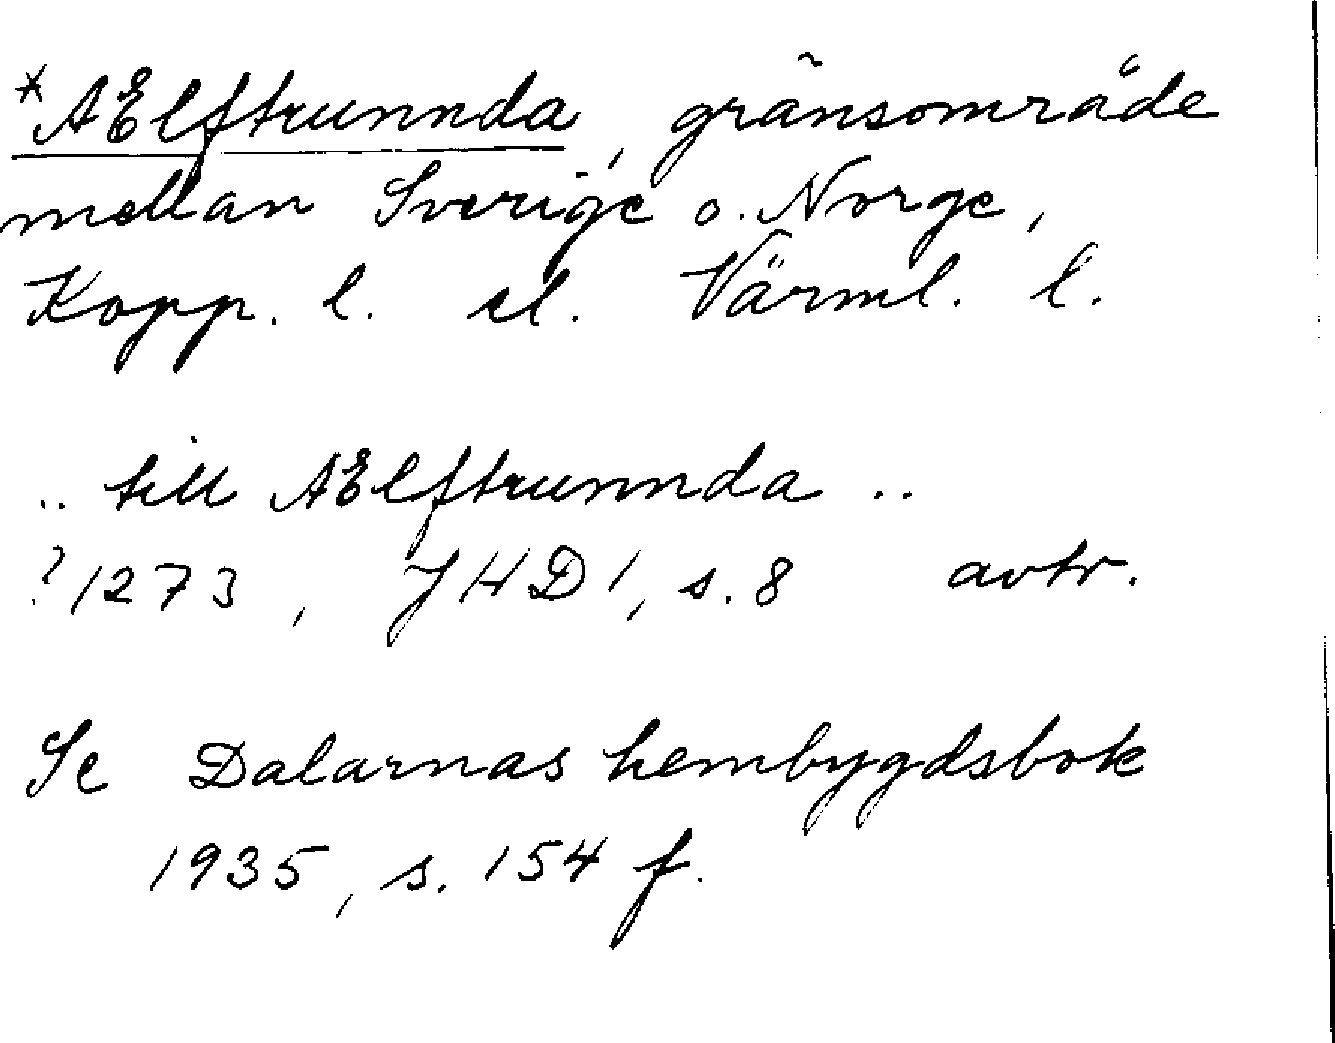 *AElftrunnda, gränsområde
mellan Sverige o. Norge,
Kopp. l. el. Värml. l.
.. till AElftrunnda ..
?1273, JHD 1, s. 8 avtr.
Se Dalarnas hembygdsbok
1935, s. 154 f.